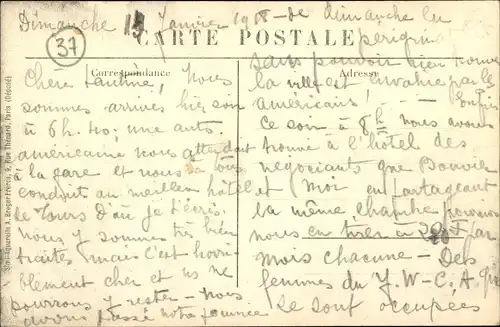 Dimanche 13 Janvier 1918 - de dimanche
37
CARTE POSTALE
Correspondance
Adresse
Chère Nous
sommes arrives hier soir
à 6h.40; une auto
américaine nous attendait
à la gare et nous a tous
conduit au meilleur hôtel
de Tours d'où je t'écris.
nous y sommes très bien
traités mais c'est horri
blement cher et ns ne
pourrons y rester - Nous
avons passé notre journee
sans pouvoir rien trouver
la ville est envahie par les
américains! Enfin
ce soir à 8h nous avons
trouvé à l'hôtel des
négociants que Bouvier
et moi en partageant
la même chambre pouvions
nous en tirer à par
mois chacune - Des
femmes du Y.W.C.A.
se sont occupées